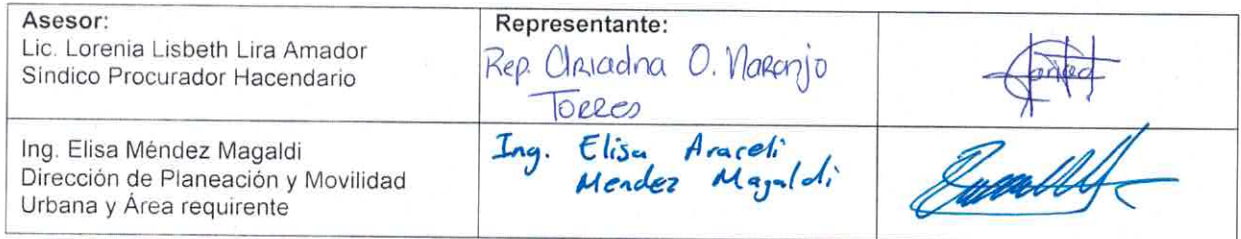 Asesor:
Lic. Lorenia Lisbeth Lira Amador
Síndico Procurador Hacendario
Representante:
Rep. Ariadna O. Naranjo
Torres
Ing. Elisa Méndez Magaldi
Dirección de Planeación y Movilidad
Urbana y Área requirente
Ing. Elisa Araceli
Mendez Magaldi